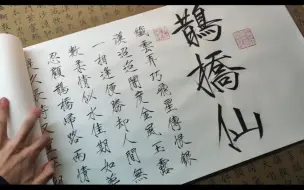 鵲橋仙
纖雲弄巧飛星傳恨銀
漢迢迢暗度金風玉露
一相逢便勝却人間無
數柔情似水佳期如夢
忍顧鵲橋歸路兩情